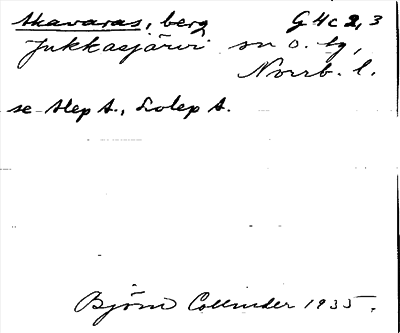 Akavaras, berg G 4c 2,3
Jukkasjärvi sn o. tg,
Norrb. l.
se Alep A., Lolep A.
Björn Collinder 1935.